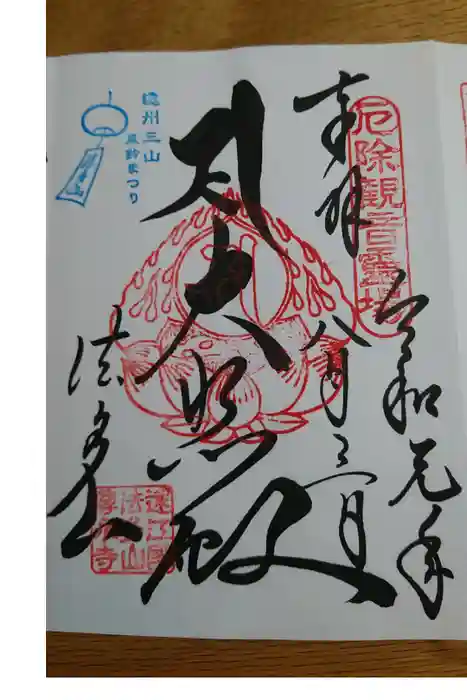 奉拝
厄除観音霊場
令和元年
八月三日
大悲殿
法多山
遠州三山
風鈴まつり
遠江國
法多山
尊永寺